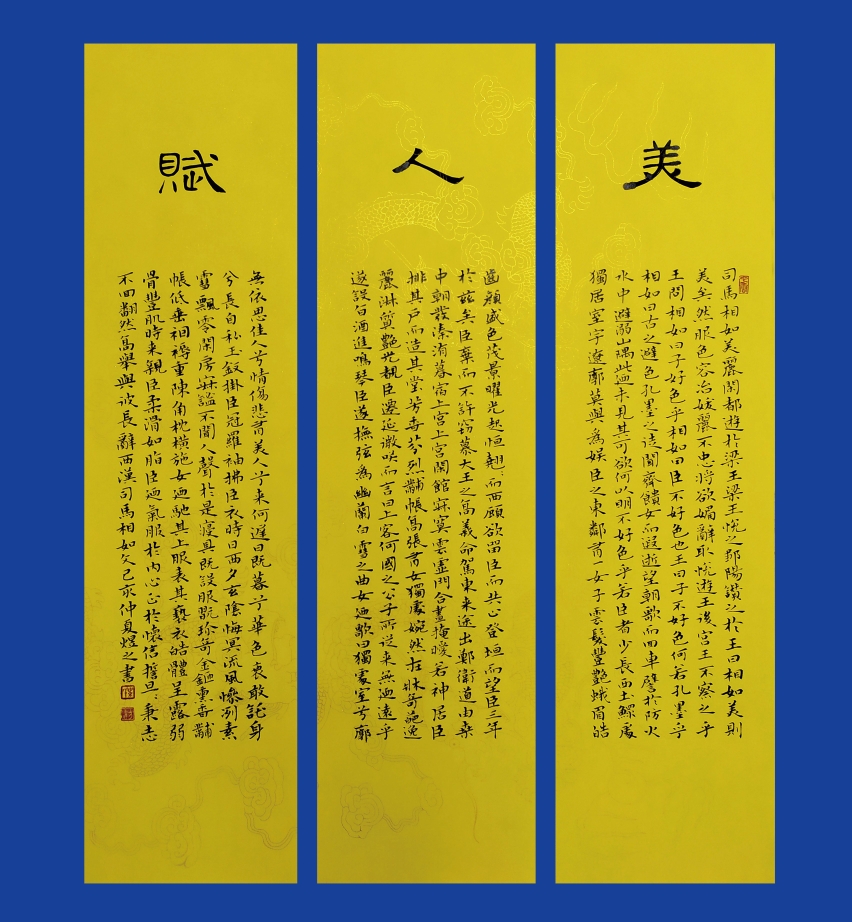 美人賦
司馬相如美麗閑都遊於梁王梁王悅之鄒陽譖之於王曰相如美則
美矣然服色容冶妖麗不忠將欲媚辭取悅遊王後宮王不察之乎
王問相如曰子好色乎相如曰臣不好色也王曰子不好色何若孔墨乎
相如曰古之避色孔墨之徒聞齊饋女而遐逝望朝歌而回車譬於防火
水中避溺山隅此迺未見其可欲何以明不好色乎若臣者少長西土鰥處
獨居室宇遼廓莫與為娛臣之東鄰有一女子雲髮豐艷蛾眉皓
齒顏盛色茂景曜光起恒翹翹而西顧欲留臣而共止登垣而望臣三年
於茲矣臣棄而不許竊慕大王之高義命駕東來途出鄭衛道由桑
中朝發溱洧暮宿上宮上宮閑館寂寞雲虛門合晝掩曖若神居臣
排其戶而造其堂芳香芬烈黼帳高張有女獨處婉然在牀奇葩逸
麗淑質艷光覩臣遷延微笑而言曰上客何國之公子所從來無迺遠乎
遂設旨酒進鳴琴臣遂撫弦為幽蘭白雪之曲女迺歌曰獨處室兮廓
無依思佳人兮情傷悲有美人兮來何遲日既暮兮華色衰敢託身
兮長自私玉釵掛臣冠羅袖拂臣衣時日西夕玄陰晦冥流風慘冽素
雪飄零閑房寂謐不聞人聲於是寢具既設服翫珍奇金鉔熏香黼
帳低垂裀褥重陳角枕橫施女迺馳其上服表其褻衣皓體呈露弱
骨豐肌時來親臣柔滑如脂臣迺氣服於內心正於懷信誓旦旦秉志
不回翻然高舉與彼長辭西漢司馬相如文己亥仲夏煜之書